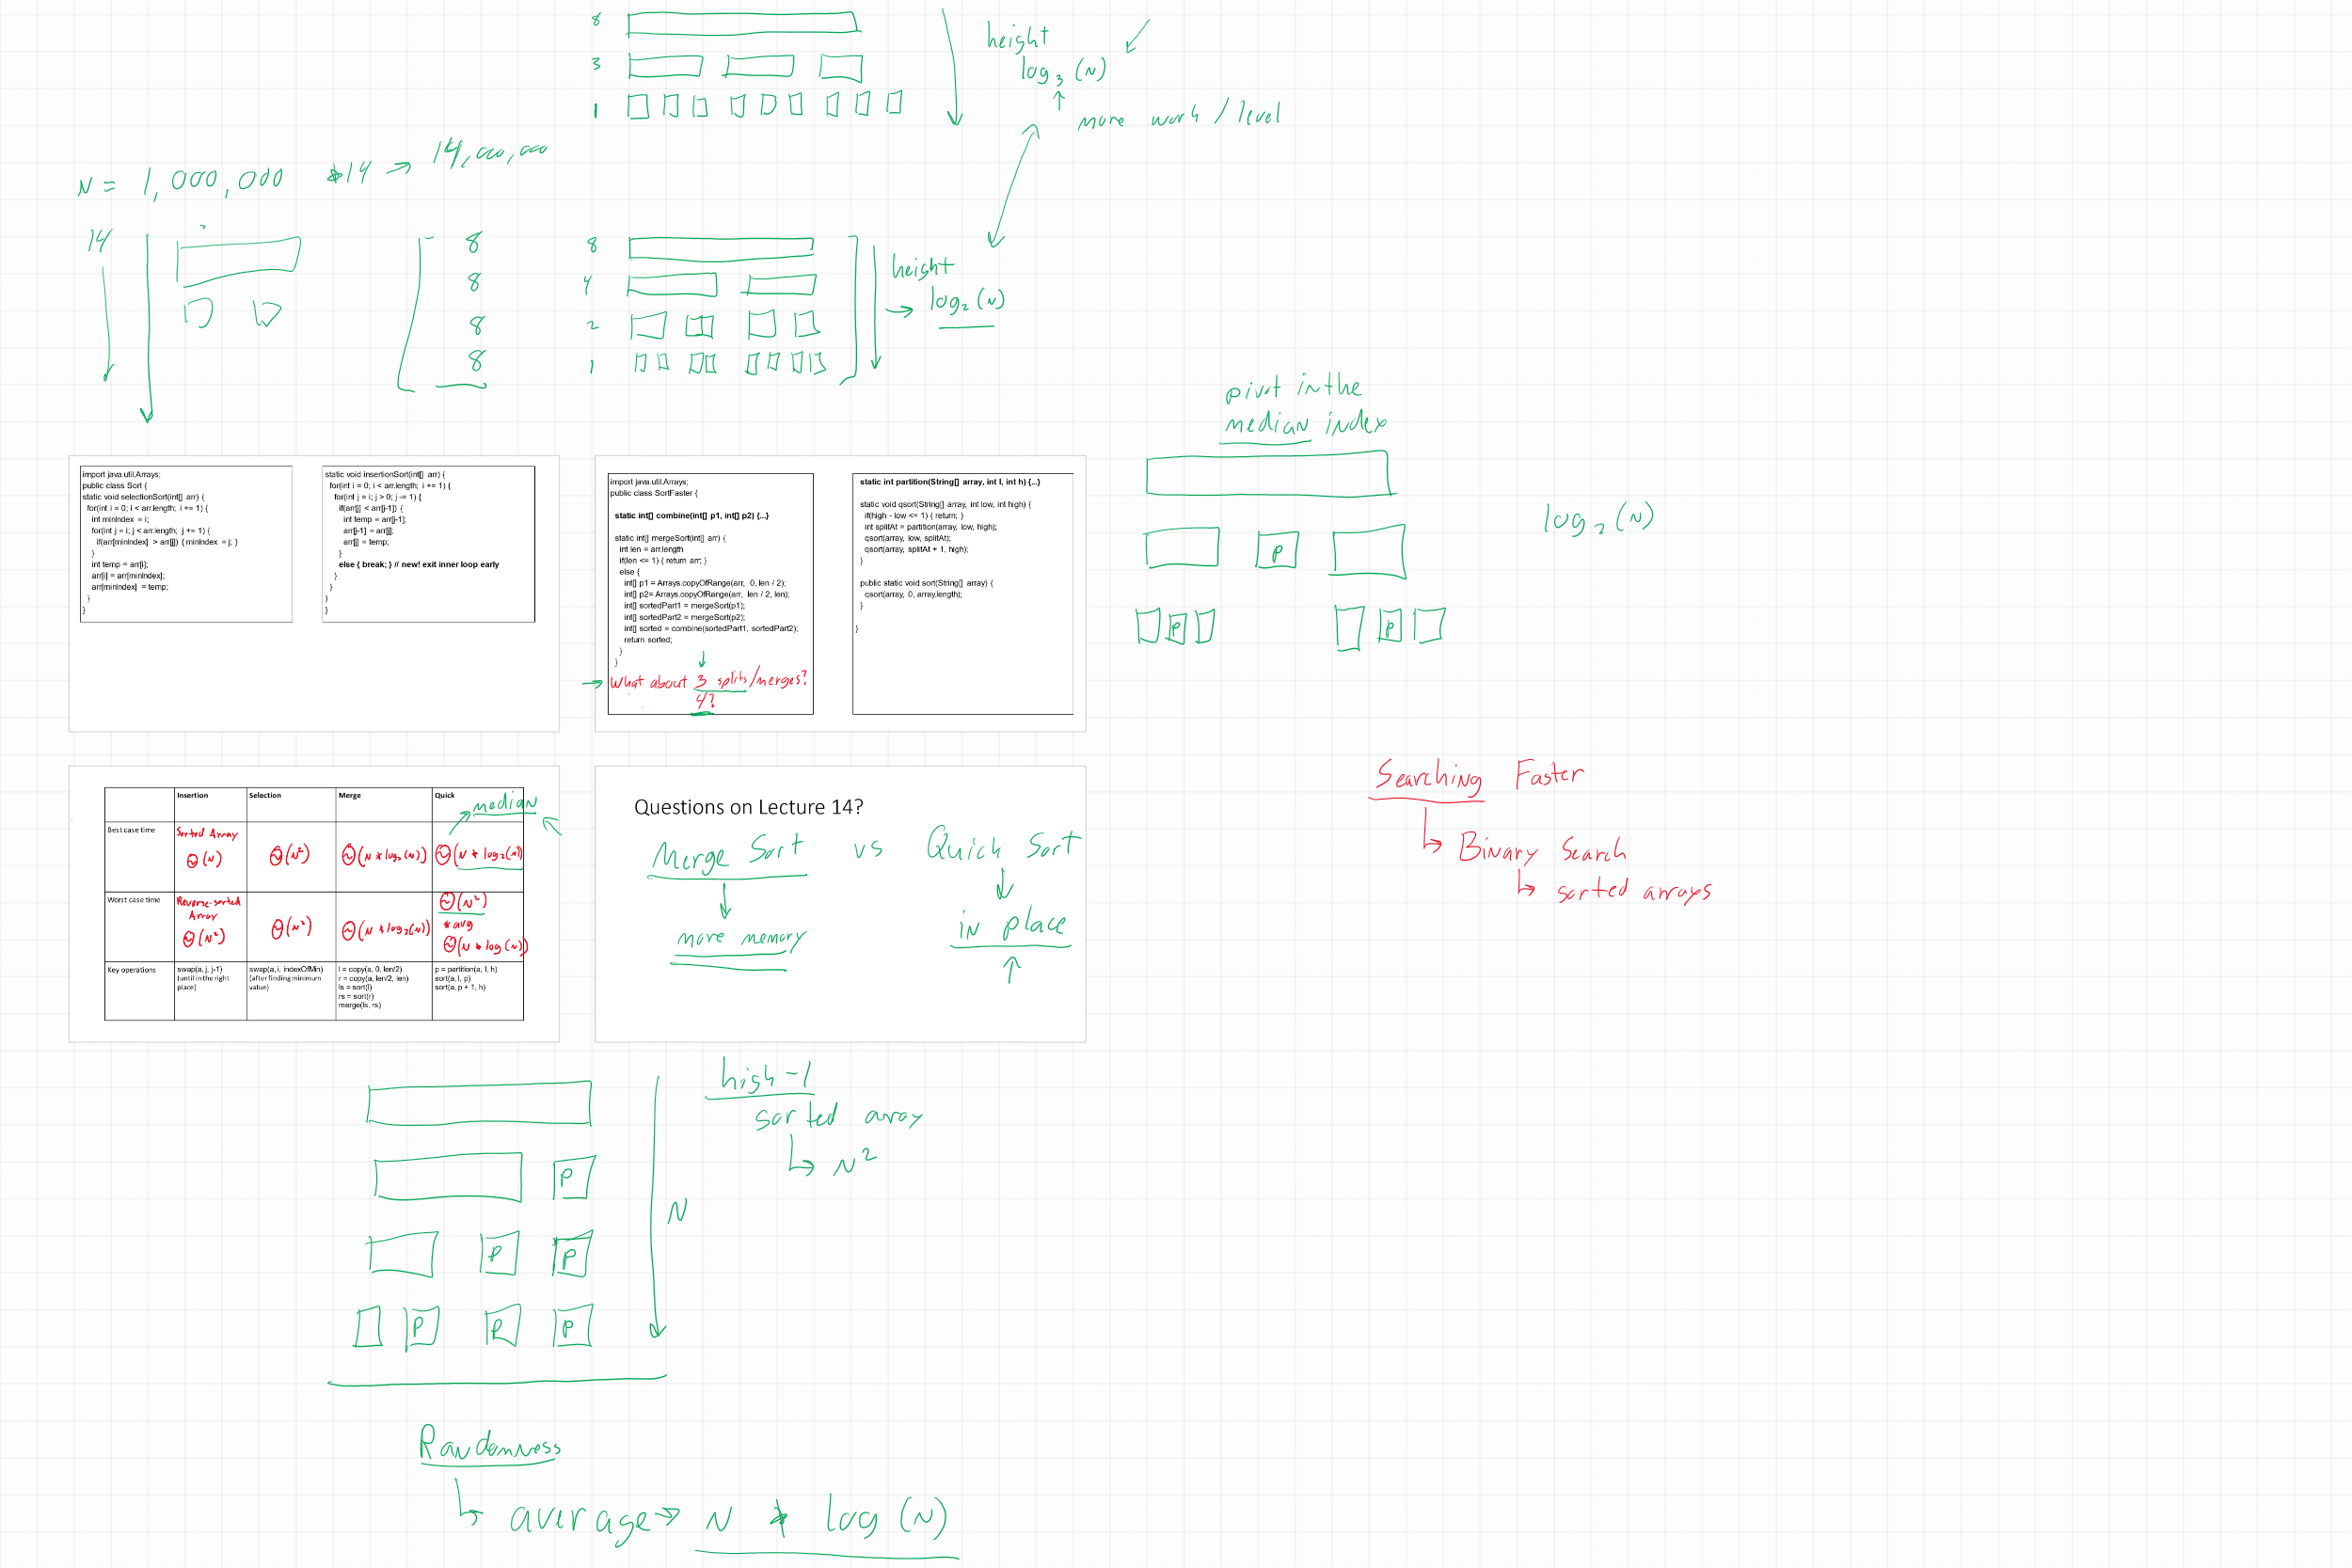 8
3
1
height
log₃(N)
↑
more work / level
N = 1,000,000 *14 → 14,000,000
14
8
8
8
8
8
4
2
1
height
→ log₂(N)
pivot in the
median index
P
P
P
log₂(N)
import java.util.Arrays;
public class Sort {
static void selectionSort(int[] arr) {
for(int i = 0; i < arr.length; i += 1) {
int minIndex = i;
for(int j = i; j < arr.length; j += 1) {
if(arr[minIndex] > arr[j]) { minIndex = j; }
}
int temp = arr[i];
arr[i] = arr[minIndex];
arr[minIndex] = temp;
}
}
static void insertionSort(int[] arr) {
for(int i = 0; i < arr.length; i += 1) {
for(int j = i; j > 0; j -= 1) {
if(arr[j] < arr[j-1]) {
int temp = arr[j-1];
arr[j-1] = arr[j];
arr[j] = temp;
}
else { break; } // new! exit inner loop early
}
}
}
}
import java.util.Arrays;
public class SortFaster {
static int[] combine(int[] p1, int[] p2) {...}
static int[] mergeSort(int[] arr) {
int len = arr.length
if(len <= 1) { return arr; }
else {
int[] p1 = Arrays.copyOfRange(arr, 0, len / 2);
int[] p2= Arrays.copyOfRange(arr, len / 2, len);
int[] sortedPart1 = mergeSort(p1);
int[] sortedPart2 = mergeSort(p2);
int[] sorted = combine(sortedPart1, sortedPart2);
return sorted;
}
}
→ What about 3 splits/merges?
4?
static int partition(String[] array, int l, int h) {...}
static void qsort(String[] array, int low, int high) {
if(high - low <= 1) { return; }
int splitAt = partition(array, low, high);
qsort(array, low, splitAt);
qsort(array, splitAt + 1, high);
}
public static void sort(String[] array) {
qsort(array, 0, array.length);
}
}
Searching Faster
↳ Binary Search
↳ sorted arrays
Insertion Selection Merge Quick
median
Best case time
Sorted Array
Θ(N)
Θ(N²)
Θ(N * log₂(N))
Θ(N * log₂(N))
Worst case time
Reverse-sorted
Array
Θ(N²)
Θ(N²)
Θ(N * log₂(N))
Θ(N²)
* avg
Θ(N * log(N))
Key operations
swap(a, j, j-1)
(until in the right
place)
swap(a, i, indexOfMin)
(after finding minimum
value)
l = copy(a, 0, len/2)
r = copy(a, len/2, len)
ls = sort(l)
rs = sort(r)
merge(ls, rs)
p = partition(a, l, h)
sort(a, l, p)
sort(a, p + 1, h)
Questions on Lecture 14?
Merge Sort vs Quick Sort
more memory
in place
high-1
sorted array
↳ N²
P
P P
P P P
N
Randomness
↳ average → N * log(N)